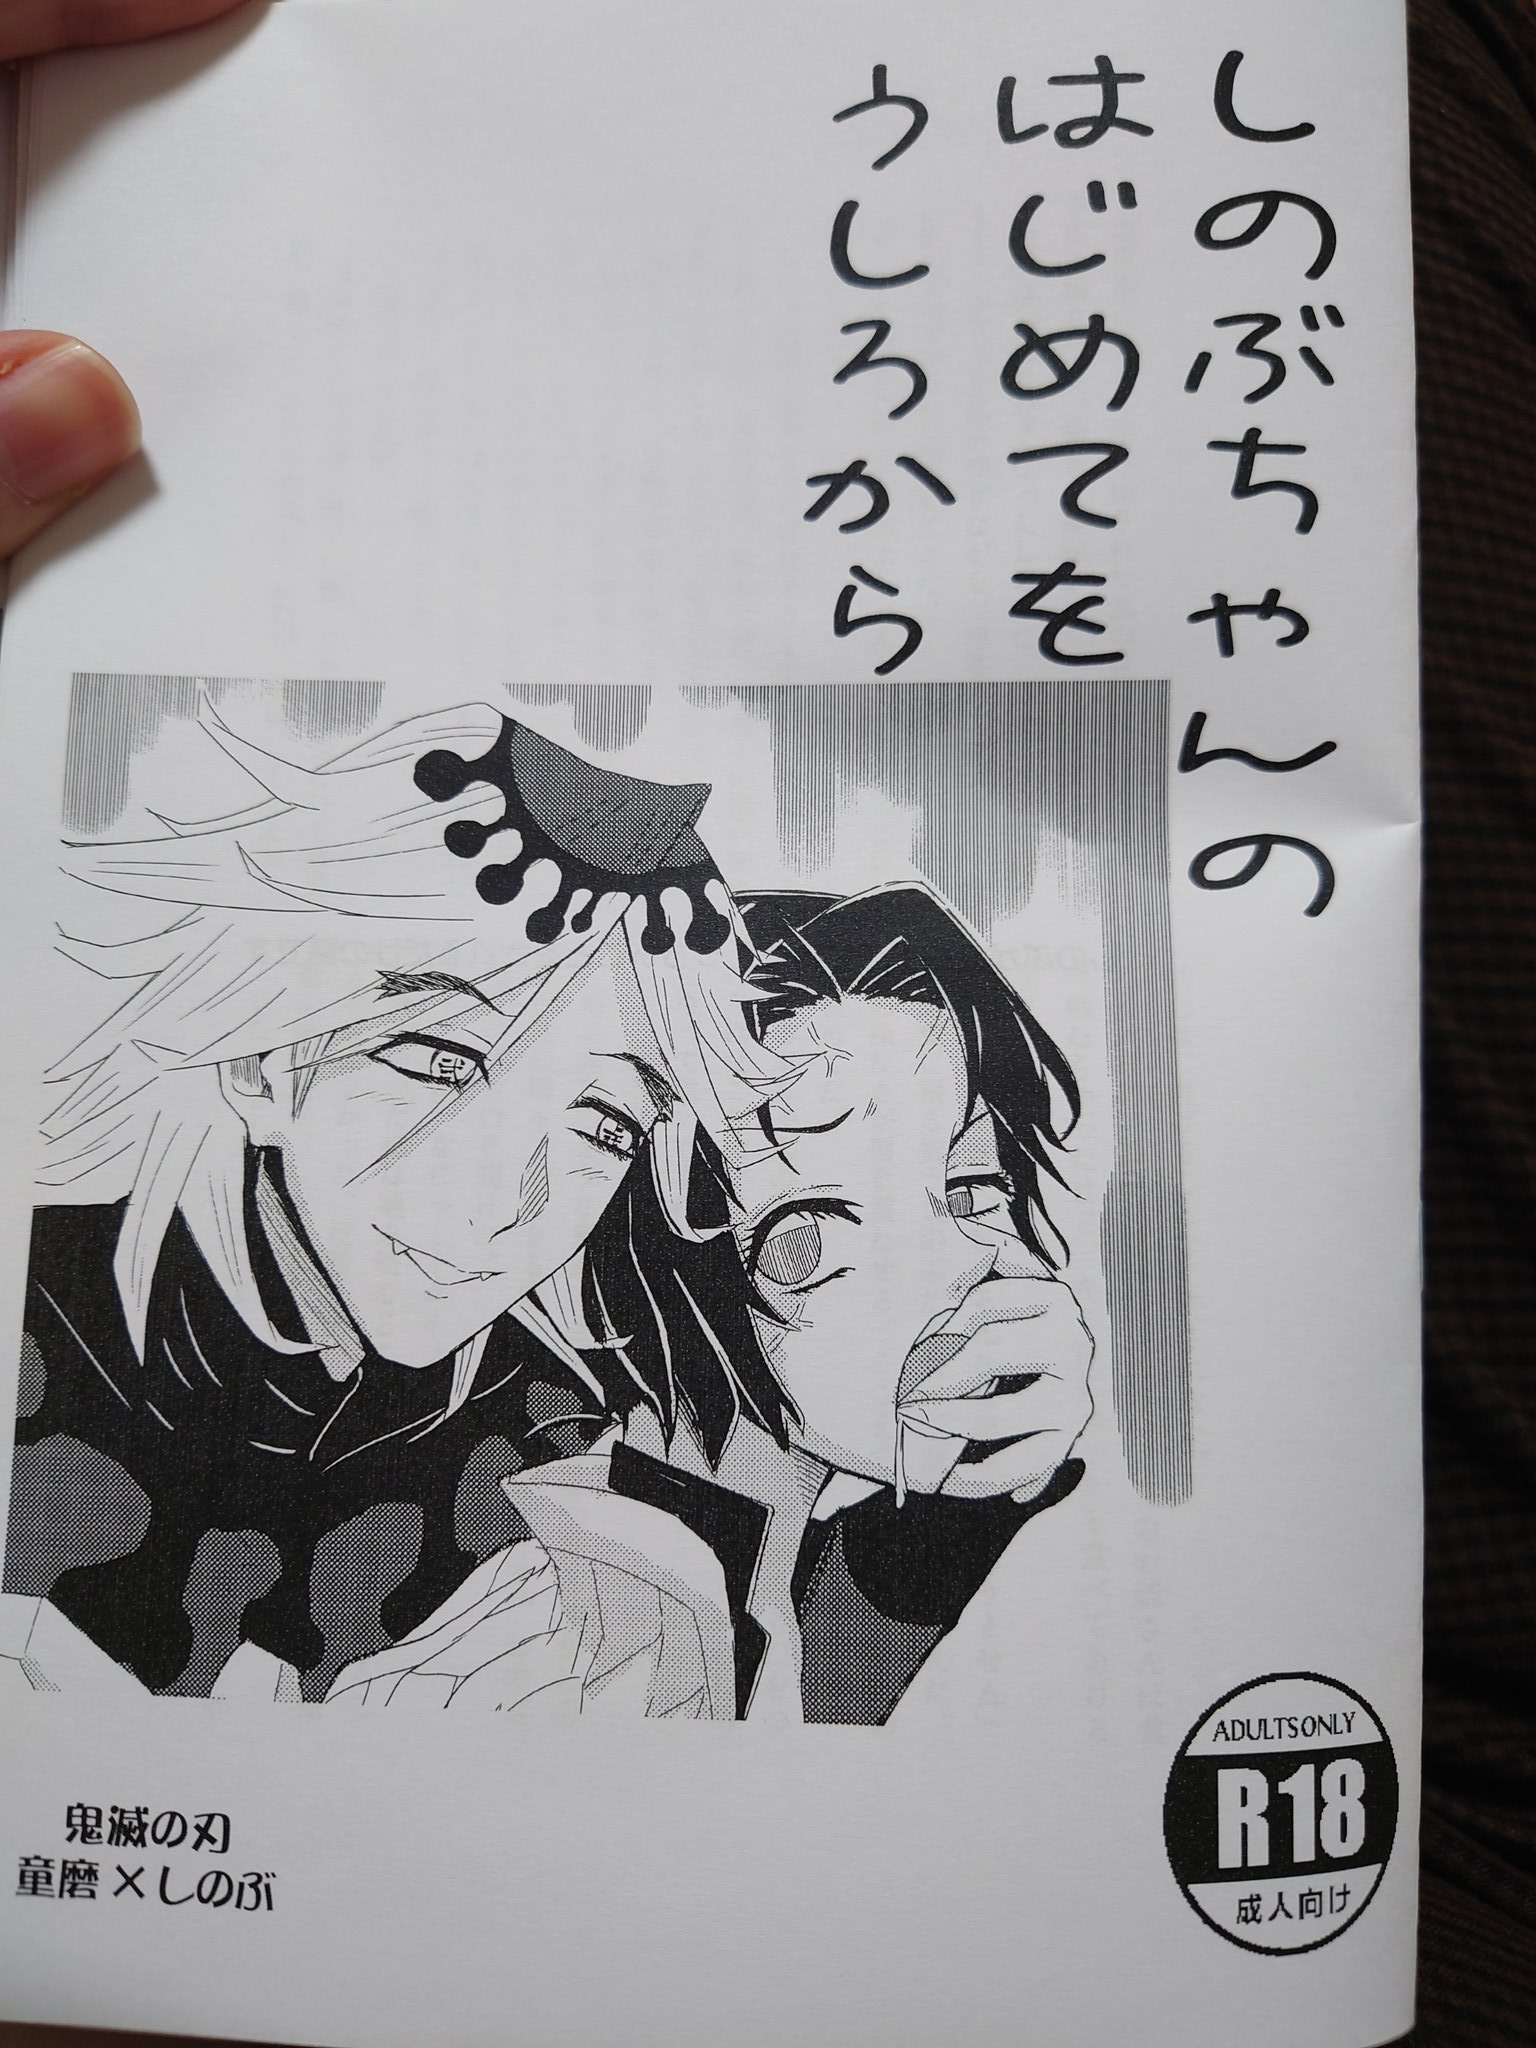 しのぶちゃんの
はじめてを
うしろから
鬼滅の刃
童磨×しのぶ
ADULTS ONLY
R18
成人向け